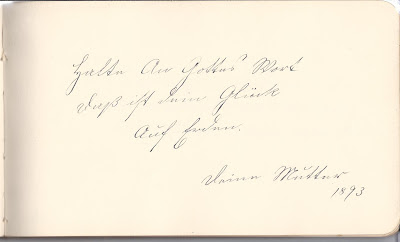 Halte An Gottes Wort
Daß ist dein Glück
Auf Erden.
Deine Mutter
1893